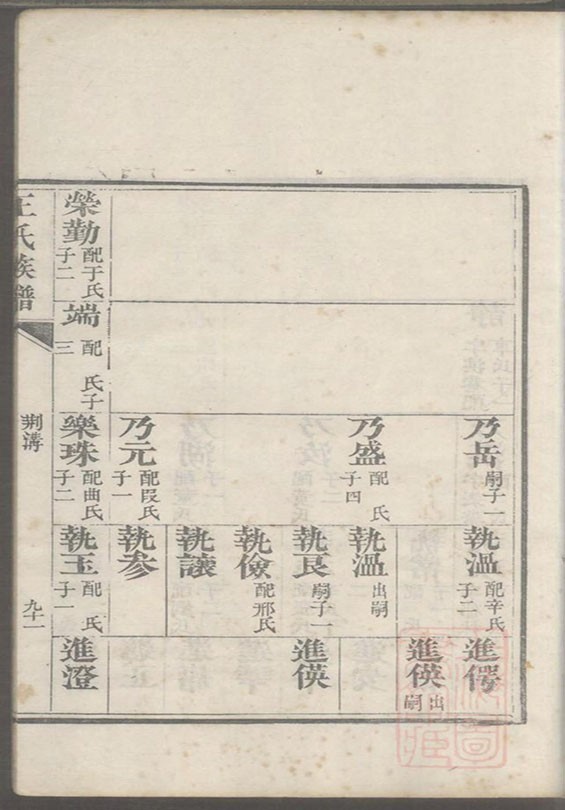 乃岳 嗣子一
執溫 配辛氏 子二
進愕
進偀 出嗣
乃盛 配 氏 子四
執溫 出嗣
執艮 嗣子一
進偀
執儉 配邢氏
執讓
乃元 配段氏 子一
執參
榮勤 配于氏 子二
端 配 氏子三
樂珠 配曲氏 子二
執玉 配 氏 子一
進澄
王氏族譜
荆溝
九十一